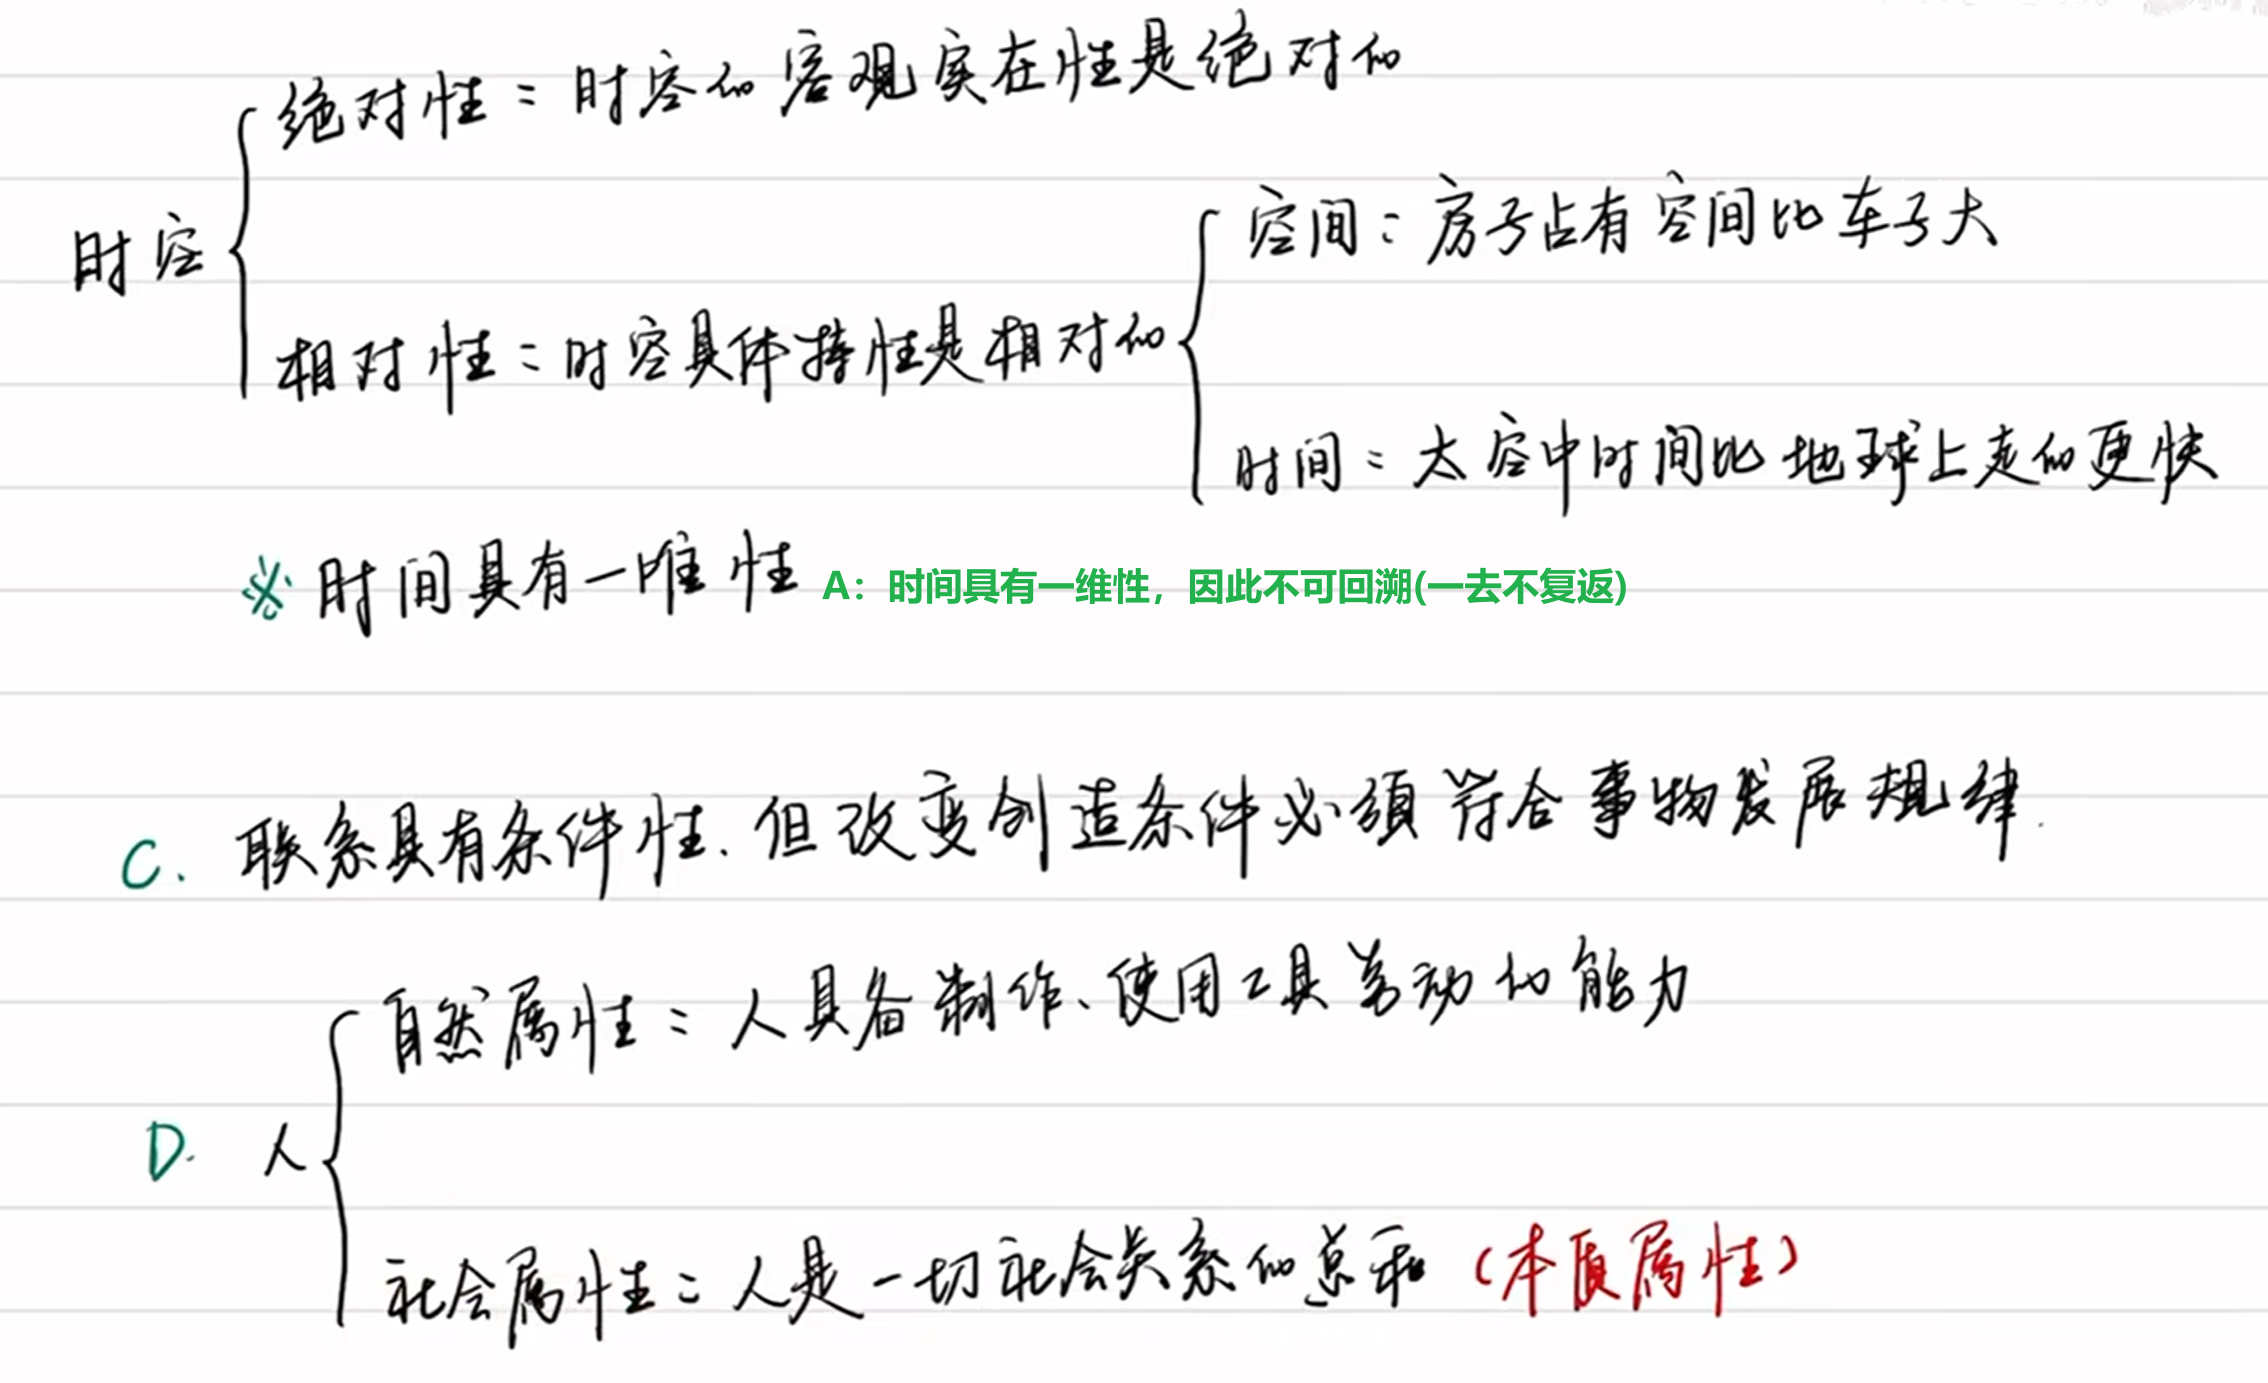 时空
绝对性：时空的客观实在性是绝对的
相对性：时空具体特性是相对的
空间：房子占有空间比车子大
时间：太空中时间比地球上走的更快
※ 时间具有一唯性 A：时间具有一维性，因此不可回溯(一去不复返)
C. 联系具有条件性.但改变创造条件必须符合事物发展规律.
D. 人
自然属性：人具备制作、使用工具劳动的能力
社会属性：人是一切社会关系的总和（本质属性）